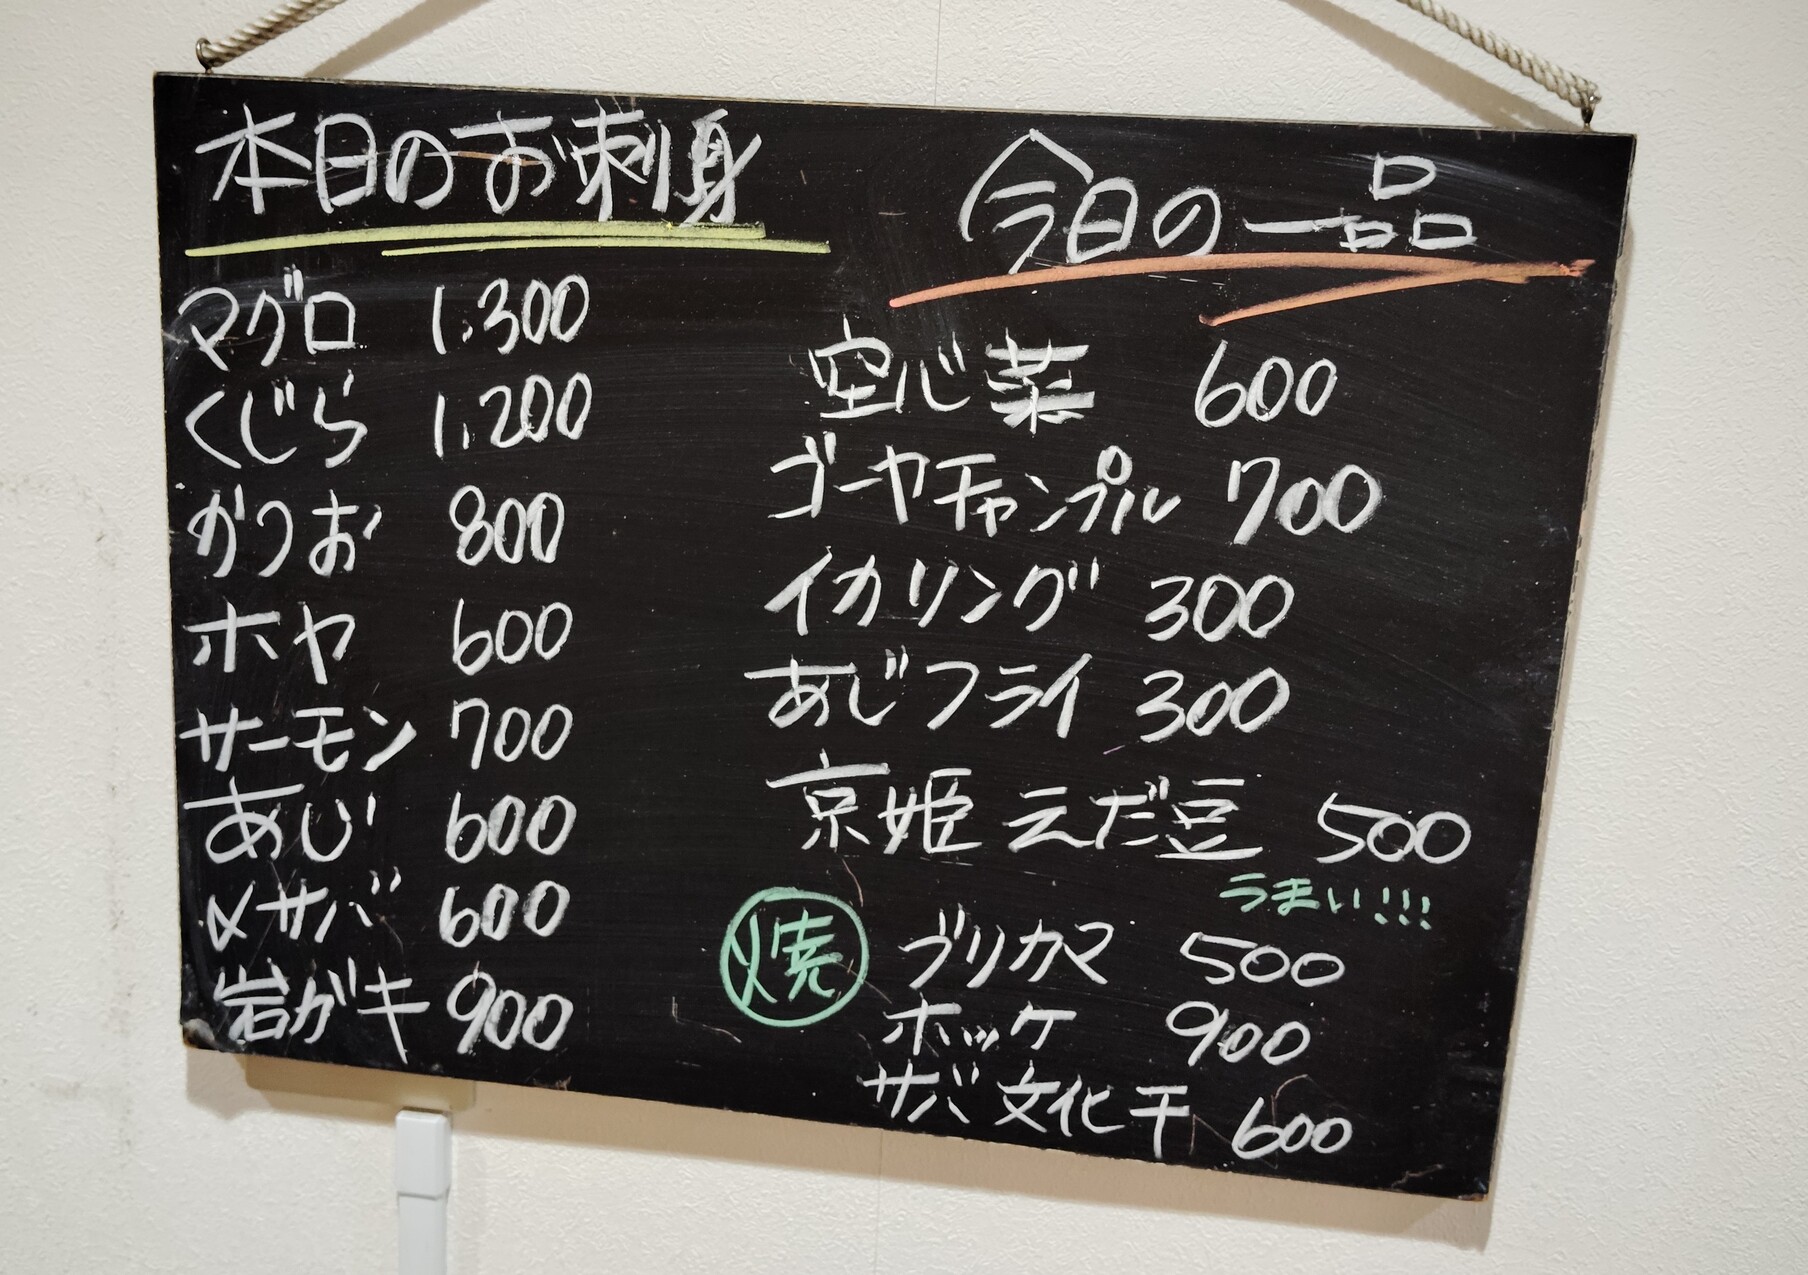 本日のお刺身
マグロ 1.300
くじら 1.200
かつお 800
ホヤ 600
サーモン 700
あじ 600
〆サバ 600
岩ガキ 900
今日の一品
空心菜 600
ゴーヤチャンプル 700
イカリング 300
あじフライ 300
京姫えだ豆 500
うまい!!!
焼 ブリカマ 500
ホッケ 900
サバ文化干 600